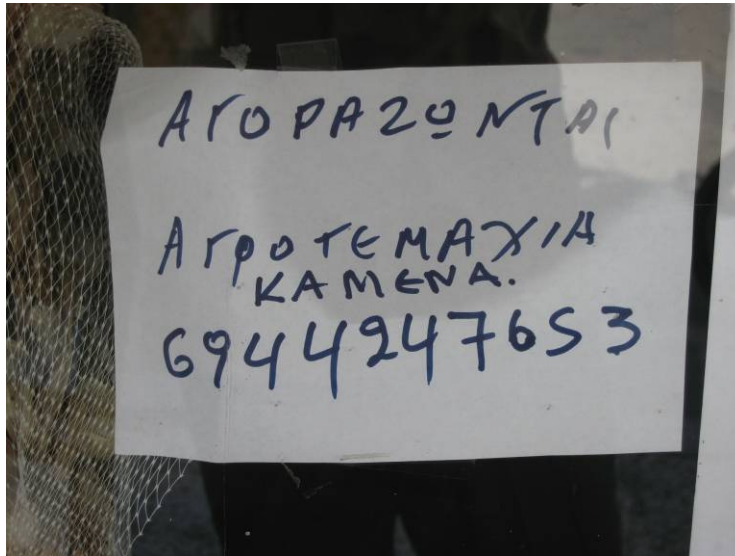 ΑΓΟΡΑΖΩΝΤΑΙ
ΑΓΡΟΤΕΜΑΧΙΑ
ΚΑΜΕΝΑ.
6944247653